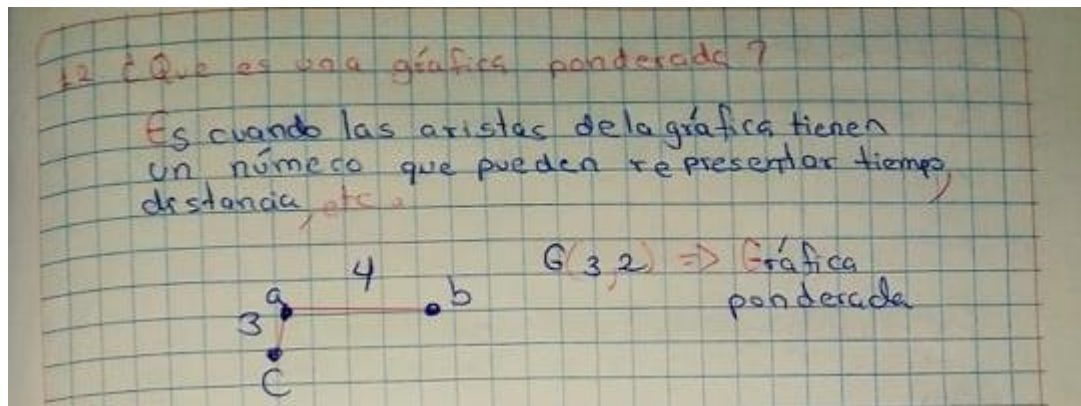 12 ¿Que es una gráfica ponderada?
Es cuando las aristas de la gráfica tienen
un número que pueden representar tiempo,
distancia, etc.
4
G(3,2) => Gráfica
ponderada
a
b
3
C